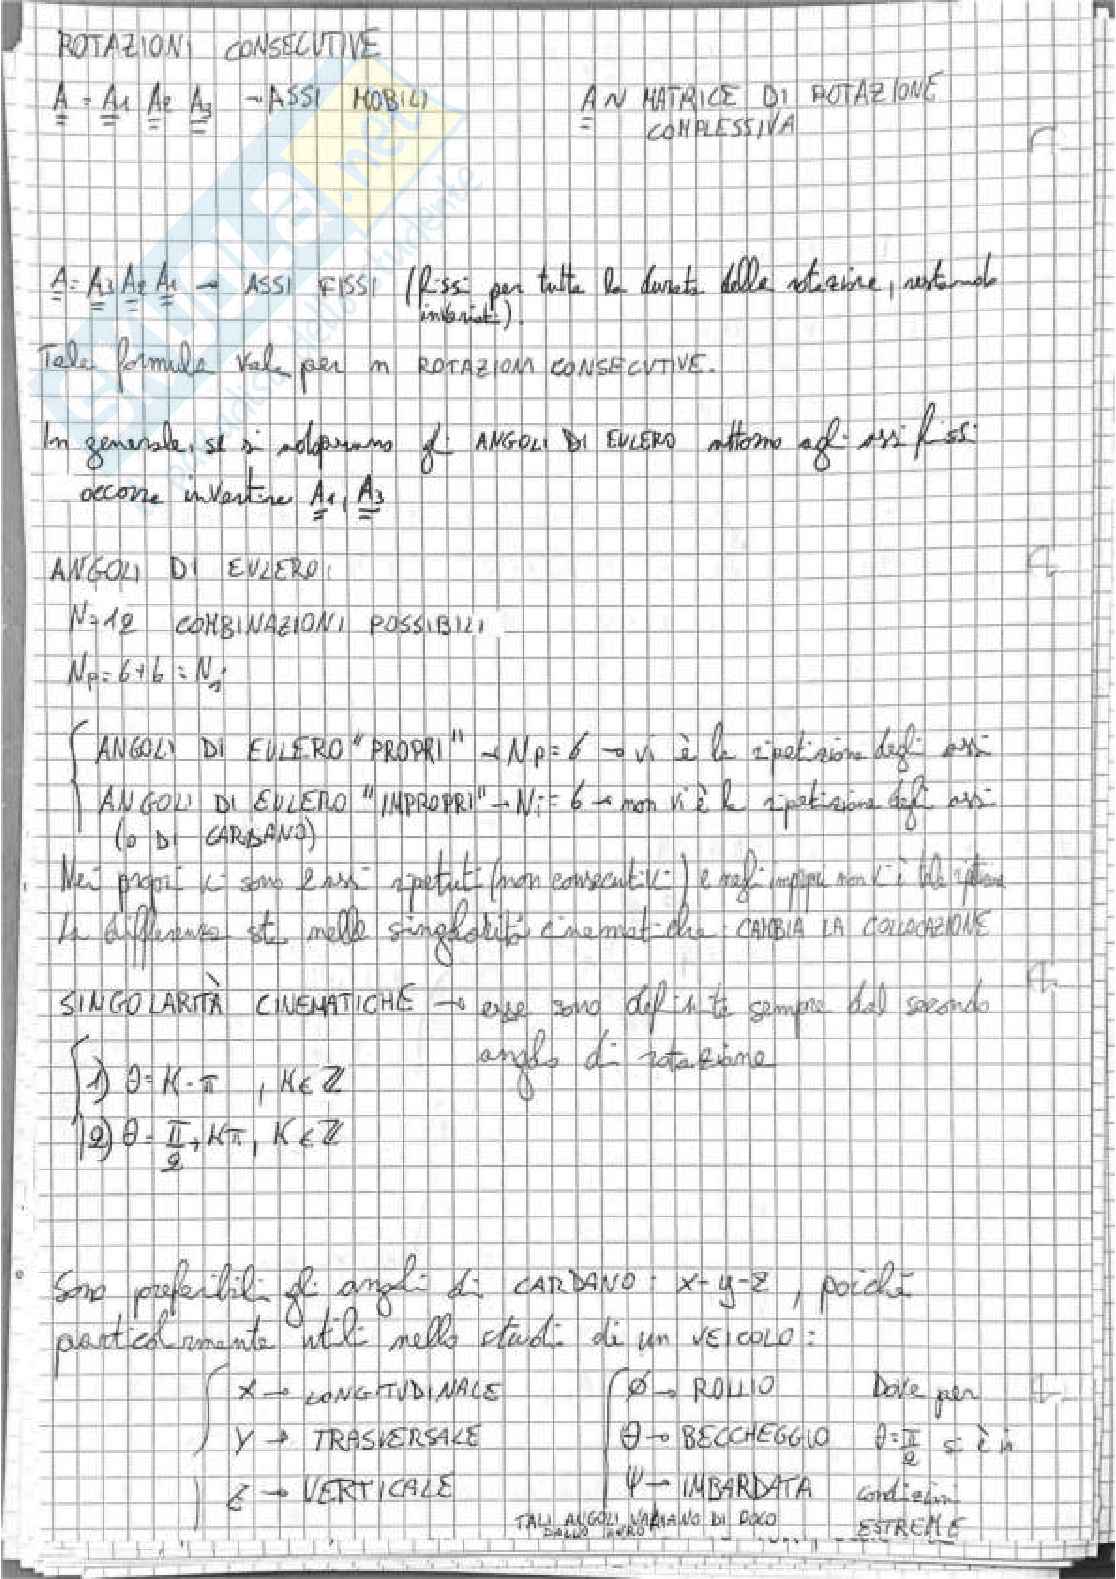 ROTAZIONI CONSECUTIVE
A = A1 A2 A3 → ASSI MOBILI A ~ MATRICE DI ROTAZIONE
COMPLESSIVA
A = A3 A2 A1 → ASSI FISSI (fissi per tutta la durata della rotazione, restando
invariati).
Tale formula vale per n ROTAZIONI CONSECUTIVE.
In generale, se si adoperano gli ANGOLI DI EULERO attorno agli assi fissi
occorre invertire A1, A3
ANGOLI DI EULERO:
N=12 COMBINAZIONI POSSIBILI
Np=6+6=Ni
ANGOLI DI EULERO "PROPRI" → Np=6 → vi è la ripetizione degli assi
ANGOLI DI EULERO "IMPROPRI" → Ni=6 → non vi è la ripetizione degli assi
(O DI CARDANO)
Nei propri ci sono 2 assi ripetuti (non consecutivi) e negli impropri non vi è tale
la differenza sta nelle singolarità cinematiche: CAMBIA LA COLLOCAZIONE
SINGOLARITÀ CINEMATICHE → esse sono definite sempre dal secondo
angolo di rotazione
1) θ=K·π , K∈Z
2) θ=π/2+Kπ, K∈Z
Sono preferibili gli angoli di CARDANO: x-y-z, poiché
particolarmente utili nello studi di un VEICOLO:
X → LONGITUDINALE Ø → ROLLIO Dove per
Y → TRASVERSALE θ → BECCHEGGIO θ=π/2 si è in
Z → VERTICALE Ψ → IMBARDATA condizioni
TALI ANGOLI VARIANO DI POCO ESTREME
DALLO ZERO
SKUOLA.net
paradiso dello studente